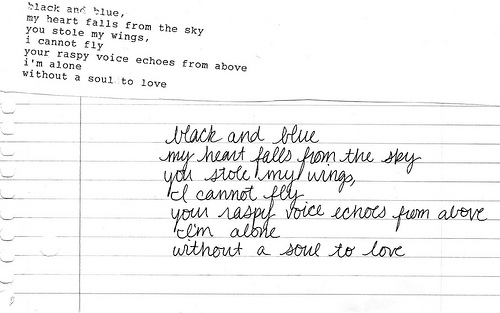 black and blue,
my heart falls from the sky
you stole my wings,
i cannot fly
your raspy voice echoes from above
i'm alone
without a soul to love
black and blue
my heart falls from the sky
you stole my wings,
I cannot fly
your raspy voice echoes from above
I'm alone
without a soul to love